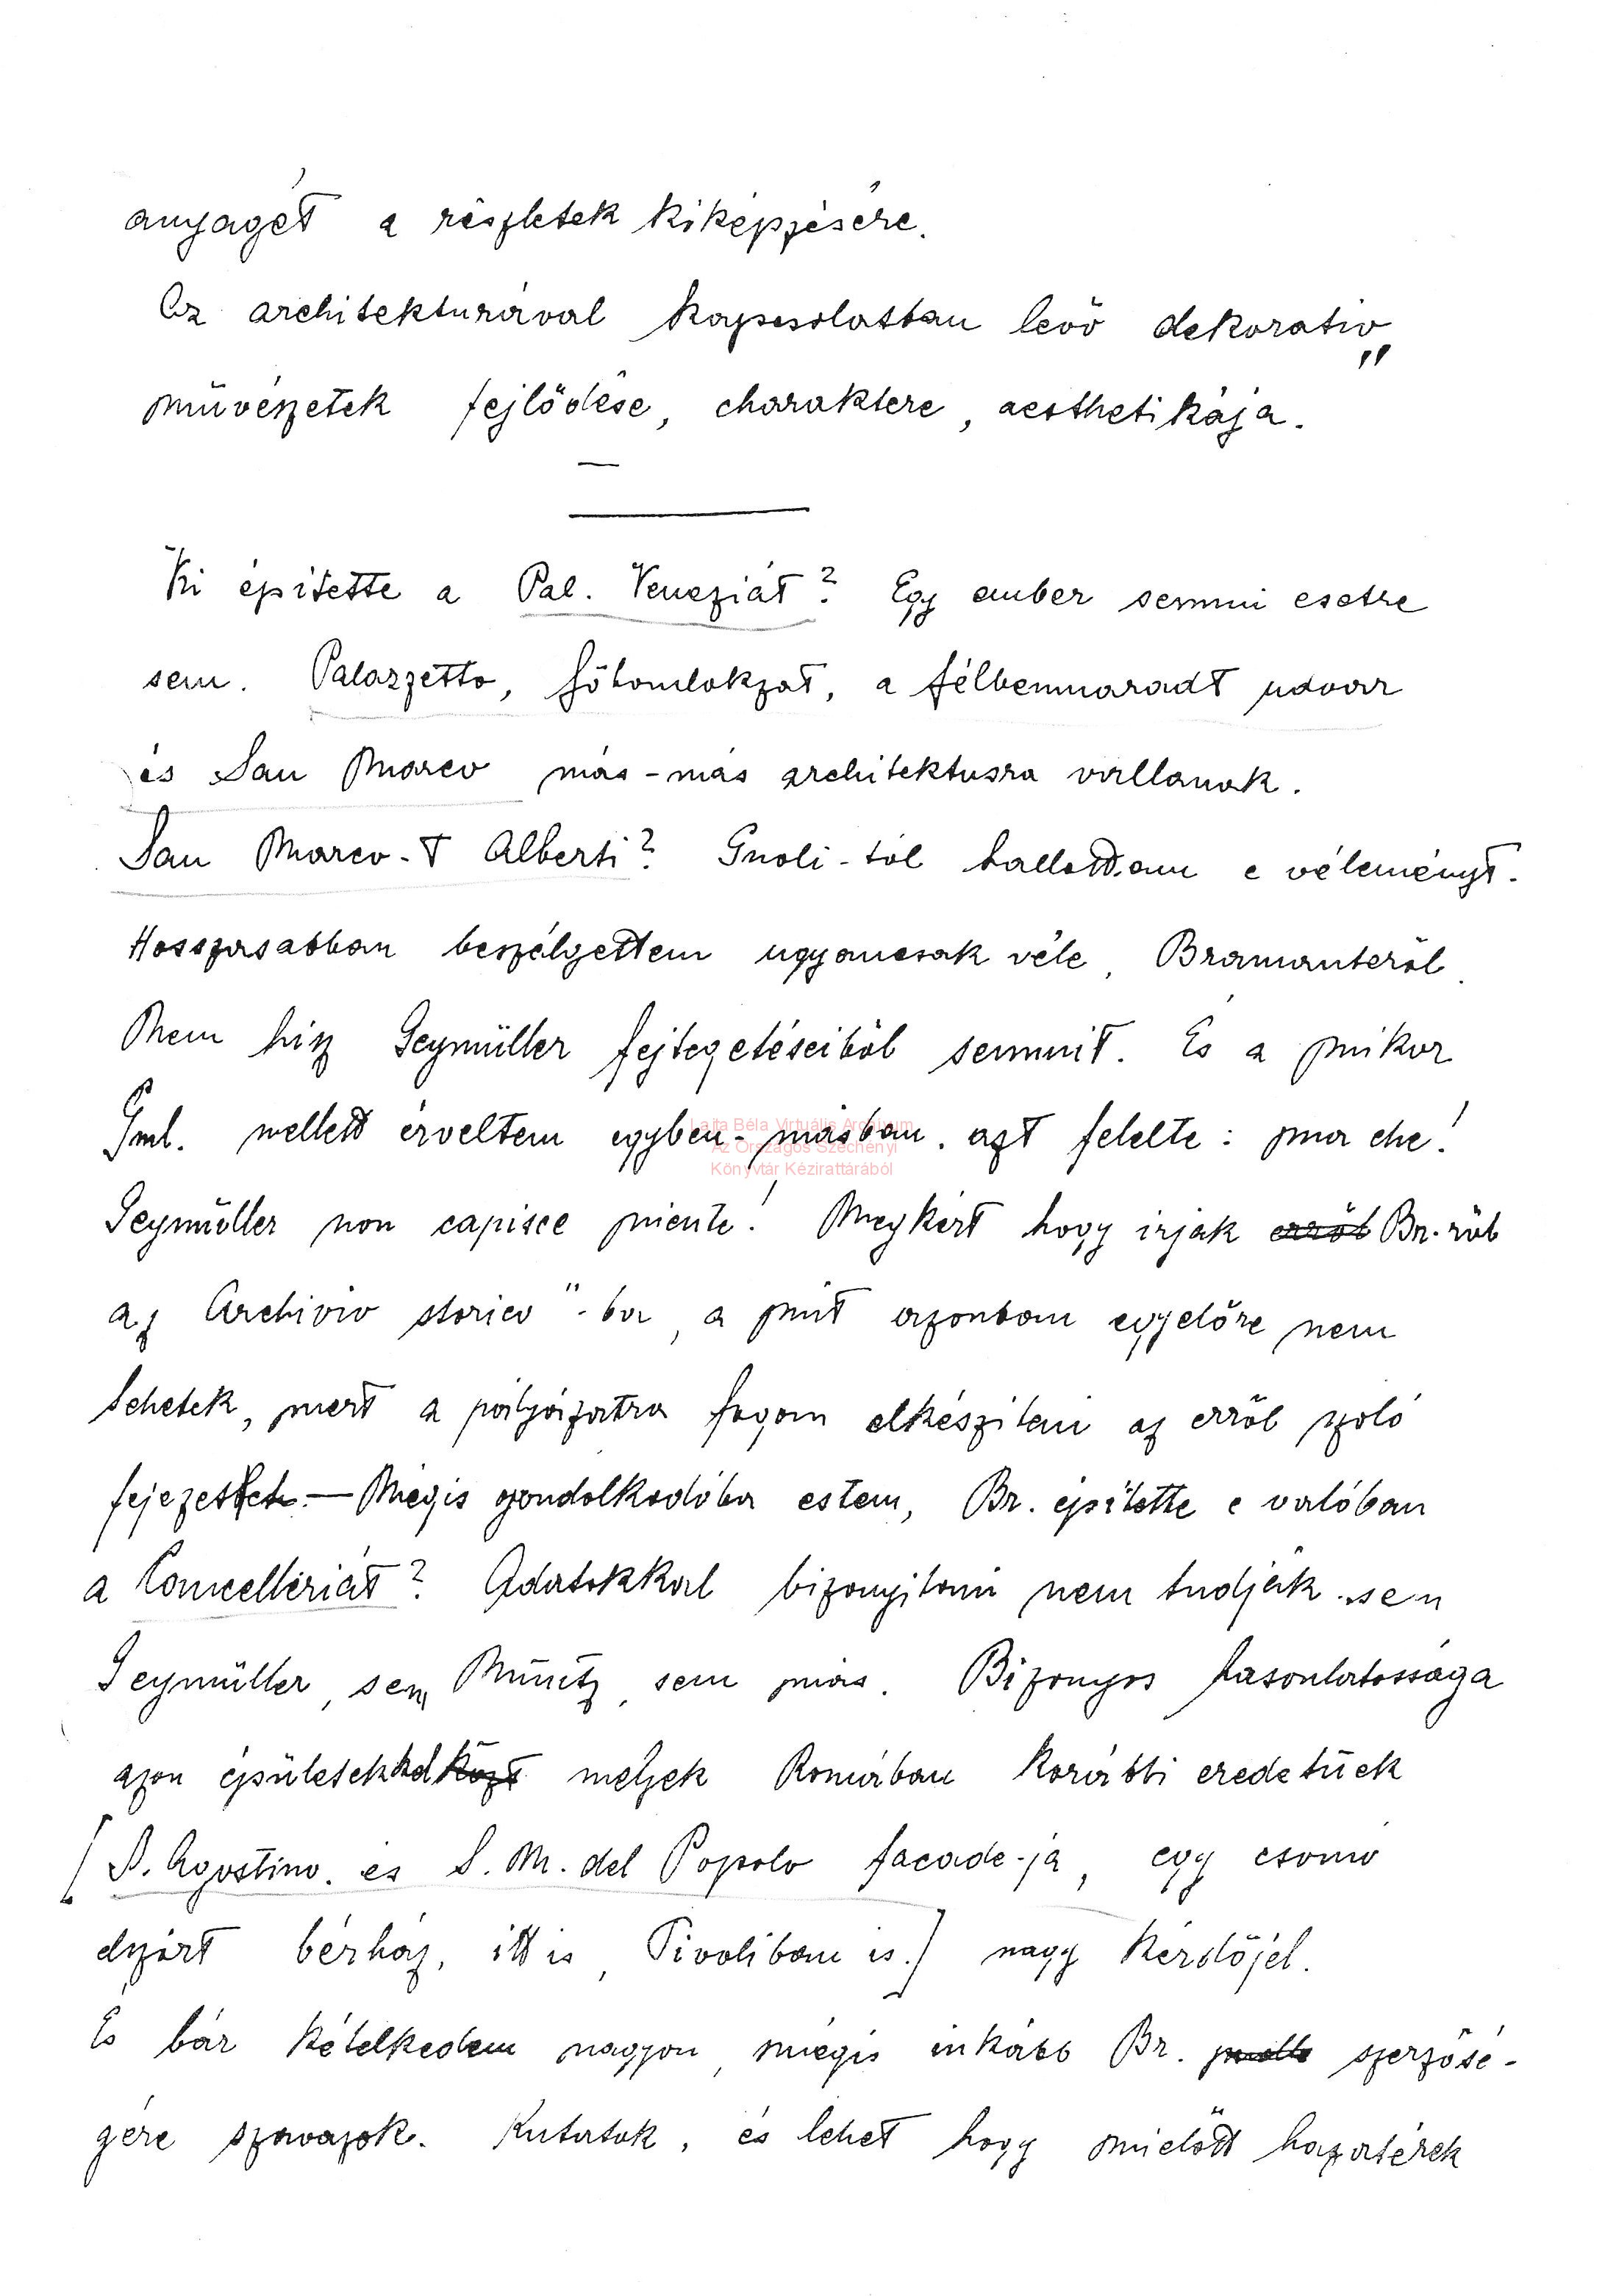 anyagét a részletek kiképzésére.
Az architekturával kapcsolatban levő dekorativ
művészetek fejlődése, charaktere, aesthetikája.
Ki épitette a Pal. Veneziát? Egy ember semmi esetre
sem. Palazzetto, főhomlokzat, a félbenmaradt udvar
és San Marco más-más architektusra vallanak.
San Marco-t Alberti? Gnoli-tól hallottam e véleményt.
Hosszasabban beszélgettem ugyancsak véle, Bramanteról.
Nem hisz Geymüller fejtegetéseiből semmit. És a mikor
Gml. mellett érveltem egyben-másban, azt felelte: ma che!
Lajta Béla Virtuális Archívum
Az Országos Széchényi
Könyvtár Kézirattárából
Geymüller non capisce niente! Megkért hogy irjak erről Br.ról
az Archivio storico"-ba, a mit azonban egyelőre nem
tehetek, mert a pályázatra fogom elkésziteni az erről szoló
fejezetet. — Mégis gondolkodóba estem, Br. épitette e valóban
a Cancelleriát? Adatokkal bizonyitani nem tudják sem
Geymüller, sem Müntz, sem más. Bizonyos hasonlatossága
azon épületekkel közt melyek Romában korábbi eredetűek
[S. Agostino. és S. M. del Popolo facade-ja, egy csomó
bérház, itt is, Tivoliban is.] nagy kérdőjel.
És bár kételkedem nagyon, mégis inkább Br. szerzősé-
gére szavazok. Kutatok, és lehet hogy mielőtt hazatérek